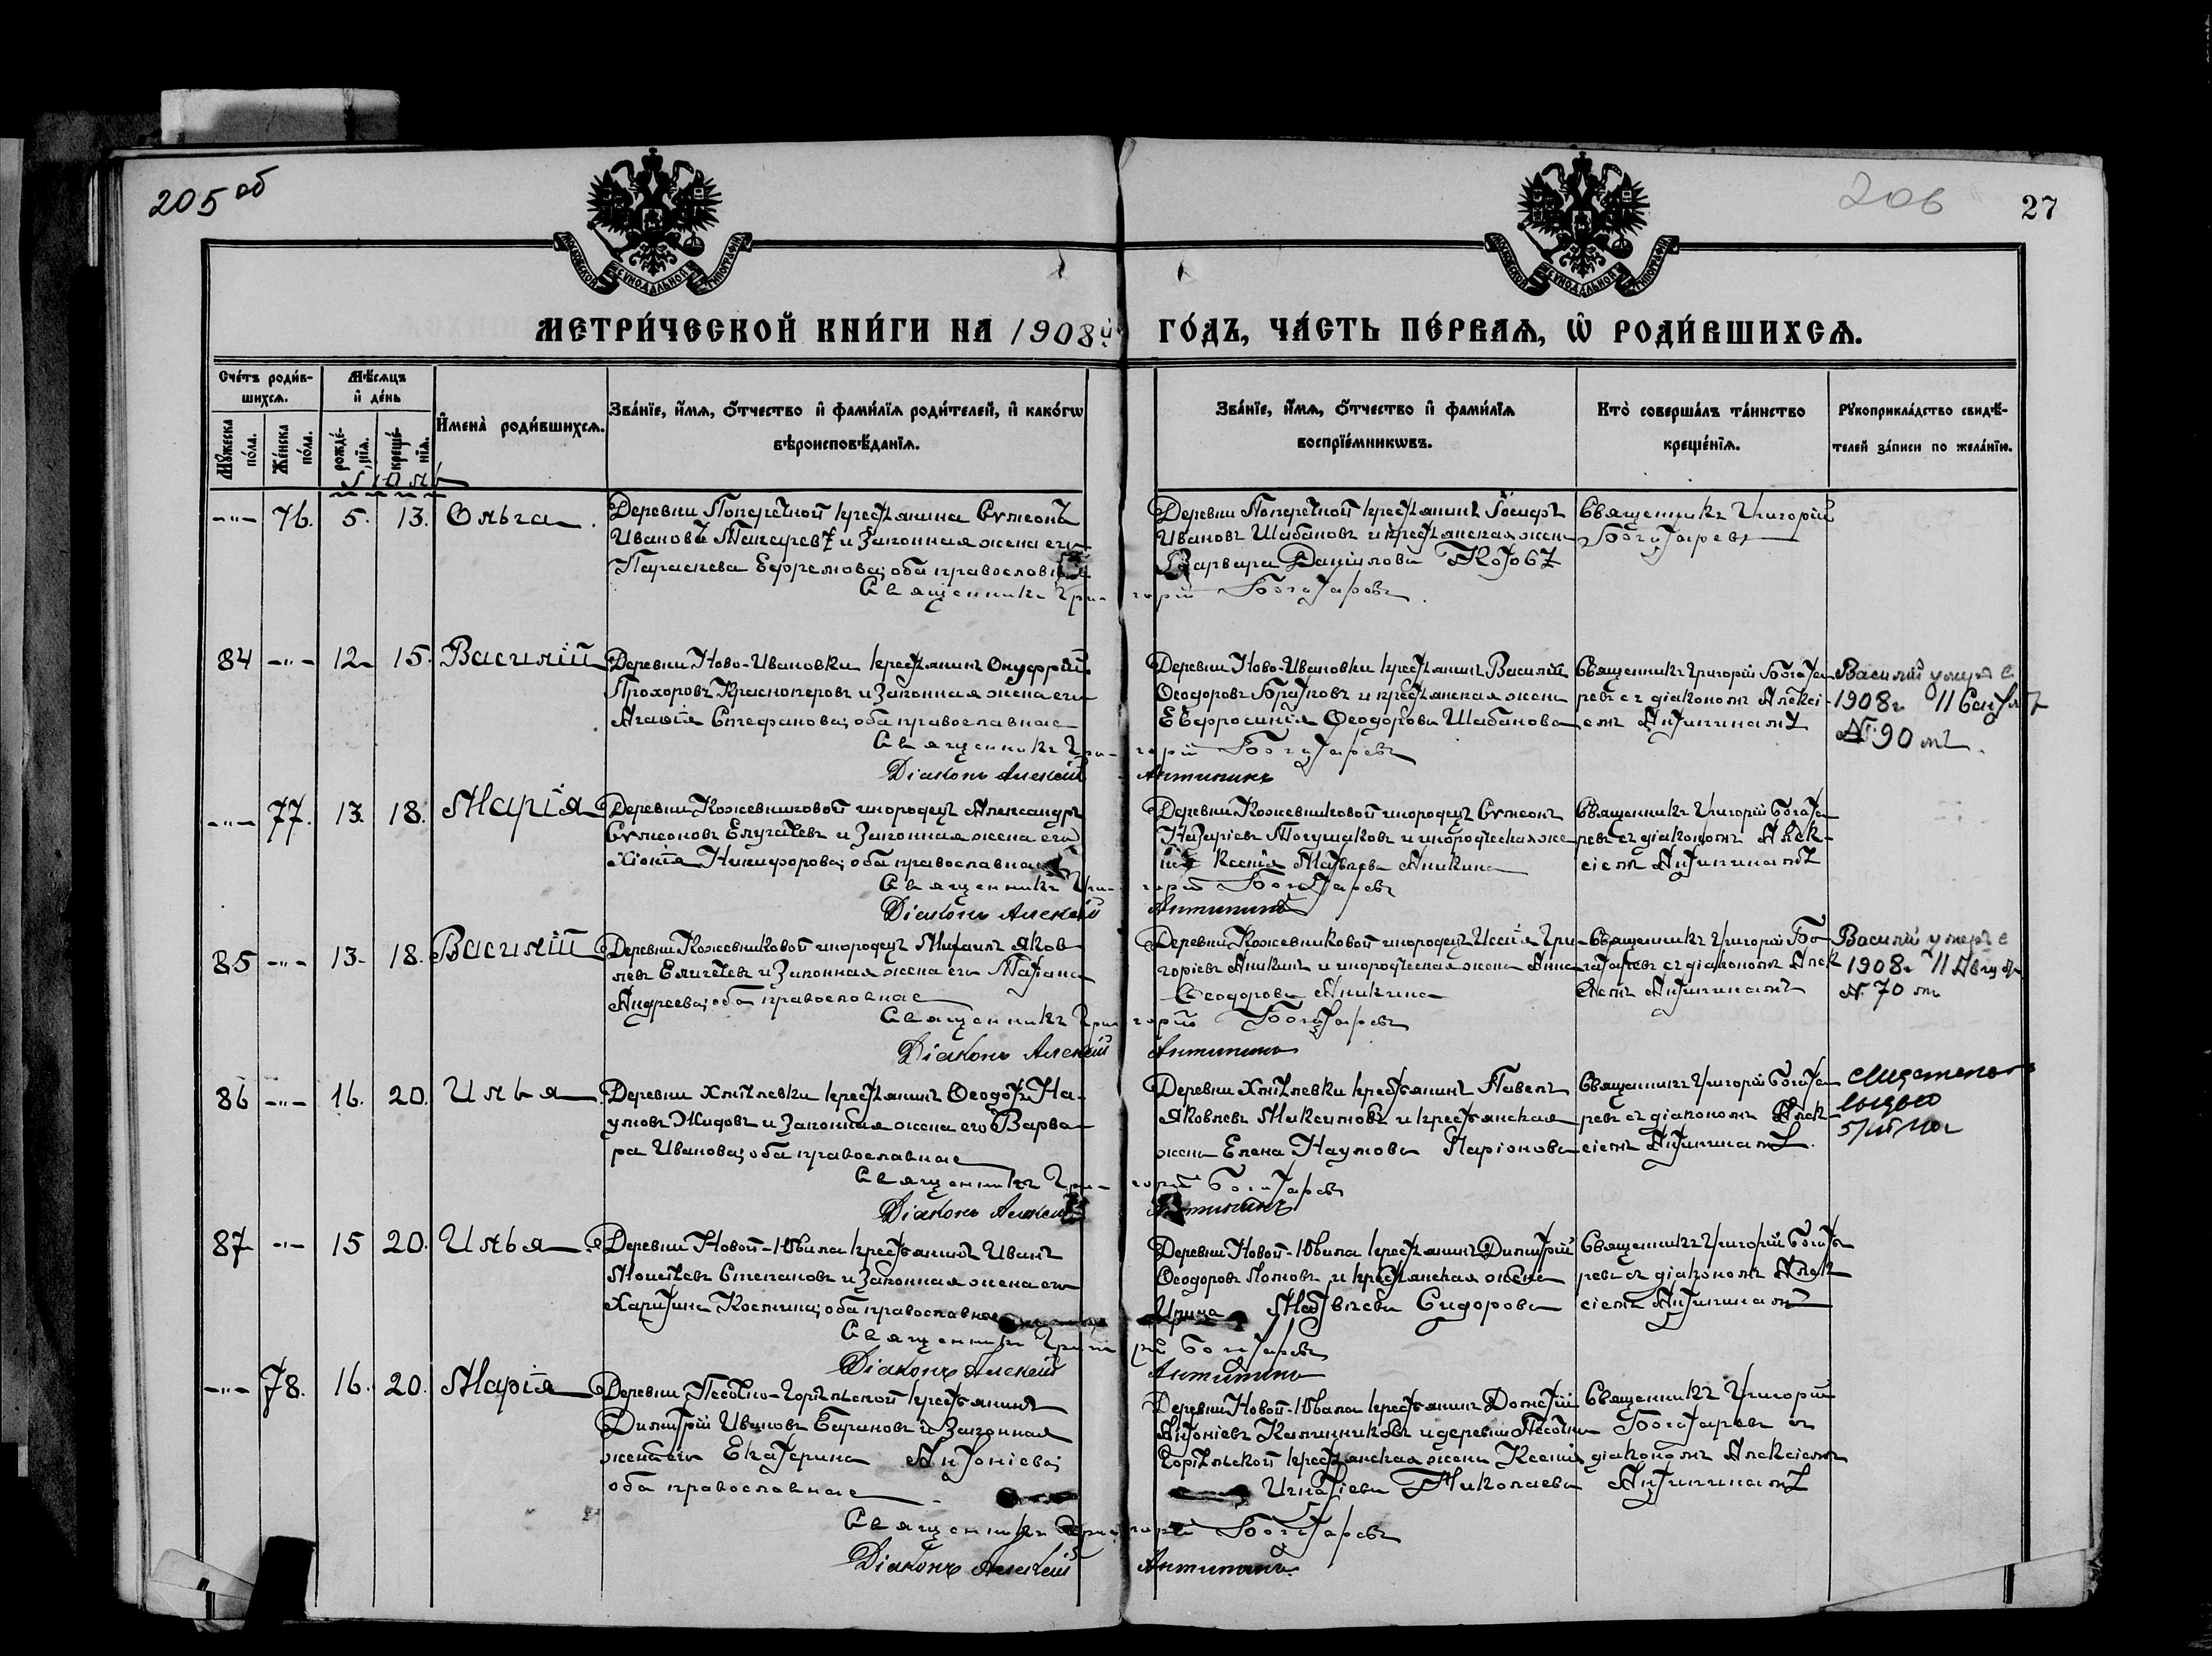 205 об
206
27
МОСКОВСКОЙ СѴНОДАЛЬНОЙ ТИПОГРАФІИ
МОСКОВСКОЙ СѴНОДАЛЬНОЙ ТИПОГРАФІИ
МЕТРИ́ЧЕСКОЙ КНИ́ГИ НА 1908й ГО́ДЪ, ЧА́СТЬ ПЕ́РВАѦ, Ѡ҆ РОДИ́ВШИХСѦ.
Сче́тъ роди́в-
шихсѧ.
Мꙋ́жеска по́ла.
Же́нска по́ла.
Мѣ́сѧцъ
и҆ де́нь
рожде́-нїѧ.
креще́-нїѧ.
И҆мена̀ роди́вшихсѧ.
Зва́нїе, и҆́мѧ, ѻ҆́тчество и҆ фами́лїѧ роди́телей, и҆ како́гѡ
вѣроисповѣ́данїѧ.
Зва́нїе, и҆́мѧ, ѻ҆́тчество и҆ фами́лїѧ
воспрїе́мникѡвъ.
Кто̀ соверша́лъ та́инство
креще́нїѧ.
Рꙋкоприкла́дство свидѣ́-
телей за́писи по жела́нїю.
Іюль
-"- 76. 5. 13. Ольга
Деревни Поперечной крестьянина Сѵмеонъ
Ивановъ Макаревъ и законная жена его
Параскева Ефремова; оба православные
Священникъ Григорій Богатаревъ
Деревни Поперечной крестьянинъ Іосифъ
Ивановъ Шабановъ и крестьянская жена
Варвара Даніилова
Священникъ Григорій
Богатаревъ
84 -"- 12 15. Василій
Деревни Ново-Ивановки крестьянинъ Онуфрій
Прохоровъ Красноперовъ и законная жена его
Агаѳія Стефанова; оба православные
Священникъ Григорій Богатаревъ
Діаконъ Алексій Антипинъ
Деревни Ново-Ивановки крестьянинъ Василій
Ѳеодоровъ Братковъ и крестьянская жена
Евфросинія Ѳеодорова Шабанова
Священникъ Григорій Богата-
ревъ съ діакономъ Алексі-
емъ Антипинымъ
Василій умеръ
1908г 11 Сентяб
№ 90
-"- 77. 13. 18. Марія
Деревни Кожевниковой инородецъ Александръ
Сѵмеоновъ Елугачевъ и законная жена его
Хіонія Никифорова; оба православные
Священникъ Григорій Богатаревъ
Діаконъ Алексій Антипинъ
Деревни Кожевниковой инородецъ Сѵмеонъ
Назаріевъ Тогушаковъ и инородческая же-
на Ксенія Матвѣева Аникина
Священникъ Григорій Богата-
ревъ съ діакономъ Алек-
сіемъ Антипинымъ
85 -"- 13. 18. Василій
Деревни Кожевниковой инородецъ Михаилъ Яков-
левъ Елугачевъ и законная жена его Татіана
Андреева; оба православные
Священникъ Григорій Богатаревъ
Діаконъ Алексій Антипинъ
Деревни Кожевниковой инородецъ Исаія Гри-
горіевъ Аникинъ и инородческая жена Анна
Ѳеодорова Аникина
Священникъ Григорій Бо-
гатаревъ съ діакономъ Алек
сіемъ Антипинымъ
Василій умеръ
1908г 11 Август
№ 70
86 -"- 16. 20. Илья
Деревни Хмѣлевки крестьянинъ Ѳеодотъ На-
умовъ Жидовъ и законная жена его Варва-
ра Иванова; оба православные
Священникъ Григорій Богатаревъ
Діаконъ Алексій Антипинъ
Деревни Хмѣлевки крестьянинъ Павелъ
Яковлевъ Максимовъ и крестьянская
жена Елена Наумова Ларіонова
Священникъ Григорій Богата-
ревъ съ діакономъ Алек-
сіемъ Антипинымъ.
87 -"- 15 20. Илья
Деревни Новой-Ювала крестьянинъ Иванъ
Моисѣевъ Степановъ и законная жена его
Харитина Космина; оба православные
Священникъ Григорій Богатаревъ
Діаконъ Алексій Антипинъ
Деревни Новой-Ювала крестьянинъ Димитрій
Ѳеодоровъ Поповъ и крестьянская жена
Ирина Матвѣева Сидорова
Священникъ Григорій Богата-
ревъ съ діакономъ Алек
сіемъ Антипинымъ
-"- 78. 16. 20. Марія
Деревни Песочно-Горѣльской крестьянинъ
Димитрій Ивановъ Бариновъ и законная
жена его Екатерина Антоніева;
оба православные
Священникъ Григорій Богатаревъ
Діаконъ Алексій Антипинъ
Деревни Новой-Ювала крестьянинъ
Антоніевъ Калинниковъ и деревни Песочно
Горѣльской крестьянская жена Ксенія
Игнатіева Николаева
Священникъ Григорій
Богатаревъ съ
діакономъ Алексіемъ
Антипинымъ